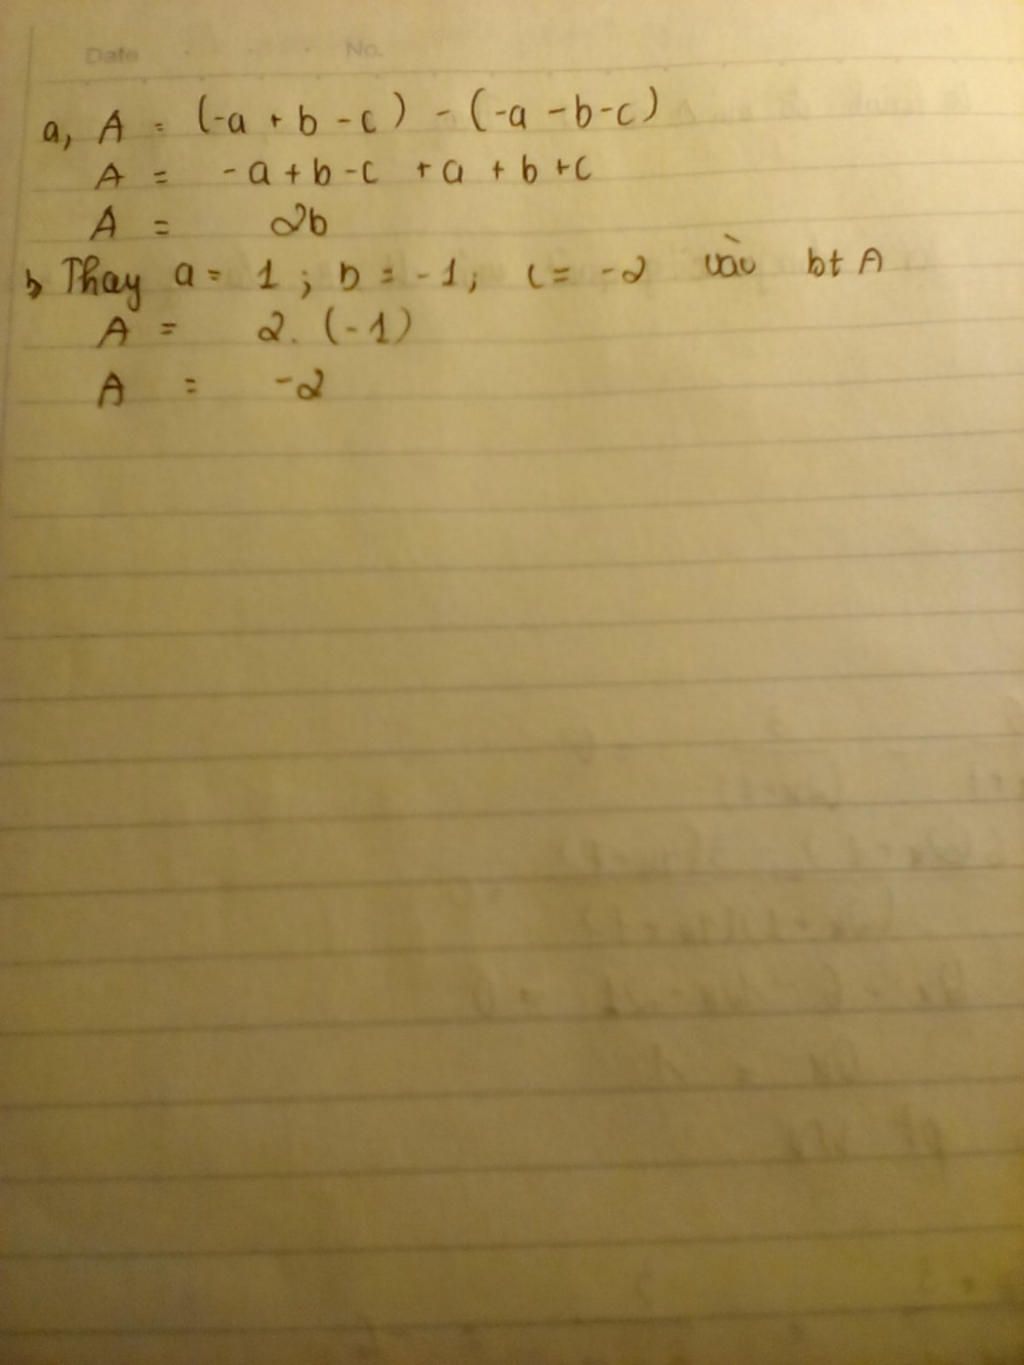 Date No.
a, A = (-a + b - c) - (-a - b - c)
A = -a + b - c + a + b + c
A = 2b
b, Thay a = 1 ; b = -1 ; c = -2 vào bt A
A = 2. (-1)
A = -2